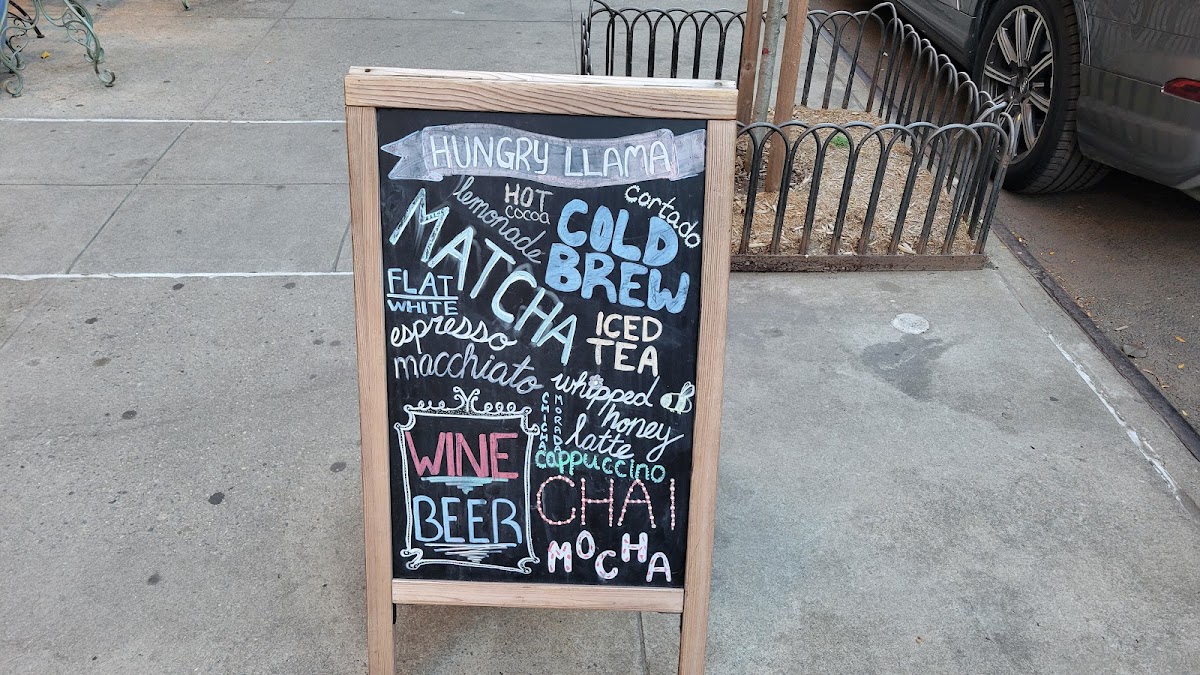 HUNGRY LLAMA
lemonade
HOT
cocoa
cortado
MATCHA
COLD
BREW
FLAT
WHITE
ICED
TEA
espresso
macchiato
whipped
honey
latte
CHICHA
MORADA
cappuccino
WINE
BEER
CHAI
MOCHA